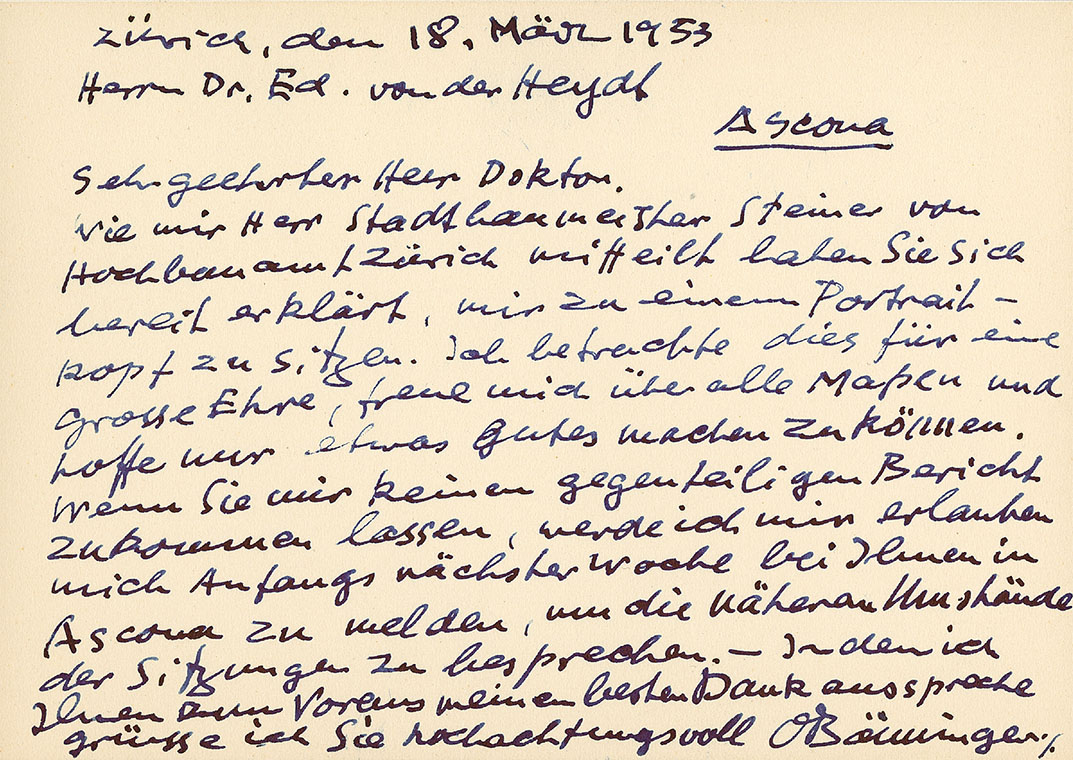 Zürich, den 18. März 1953
Herrn Dr. Ed. von der Heydt
Ascona
Sehr geehrter Herr Doktor.
Wie mir Herr Stadtbaumeister Steiner vom
Hochbauamt Zürich mitteilt haben Sie sich
bereit erklärt, mir zu einem Portrait-
kopf zu sitzen. Ich betrachte dies für eine
grosse Ehre, freue mich über alle Maßen und
hoffe nur etwas Gutes machen zu können.
Wenn Sie mir keinen gegenteiligen Bericht
zukommen lassen, werde ich mir erlauben
mich Anfangs nächster Woche bei Ihnen in
Ascona zu melden, um die näheren Umstände
der Sitzungen zu besprechen. – Indem ich
Ihnen zum Voraus meinen besten Dank ausspreche
grüsse ich Sie hochachtungsvoll OBänninger.